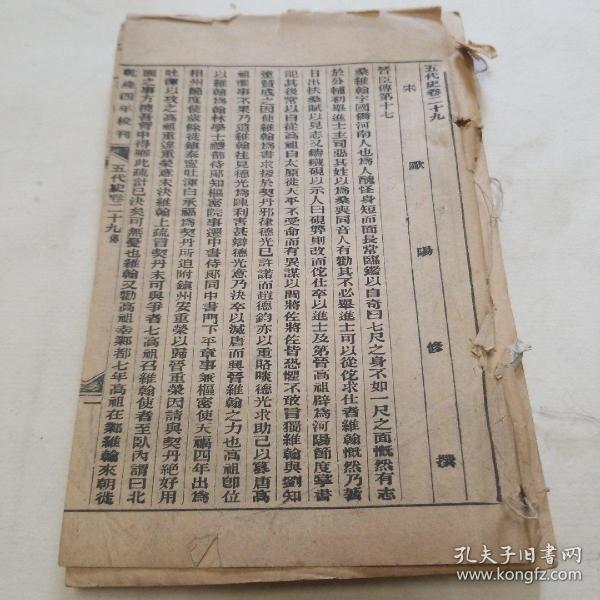 五代史卷二十九
宋 歐陽修 撰
晉臣傳第十七
桑維翰字國僑河南人也爲人醜怪身短而面長常臨鑑以自奇曰七尺之身不如一尺之面慨然有志
於公輔初舉進士主司惡其姓以爲桑喪同音人有勸其不必舉進士可以從佗求仕者維翰慨然乃著
日出扶桑賦以見志又鑄鐵硯以示人曰硯弊則改而佗仕卒以進士及第晉高祖辟爲河陽節度掌書
記其後常以自從高祖自太原徙天平不受命而有異謀以問將佐將佐皆恐懼不敢言獨維翰與劉知
遠贊成之因使維翰爲書求援於契丹耶律德光已許諾而趙德鈞亦以重賂啗德光求助己以篡唐高
祖懼事不果乃遣維翰往見德光爲陳利害甚辯德光意乃決卒以滅唐而興晉維翰之力也高祖卽位
以維翰爲翰林學士禮部侍郎知樞密院事遷中書侍郎同中書門下平章事兼樞密使天福四年出爲
相州節度使歲餘徙鎮泰寧吐渾白承福爲契丹所迫附鎮州安重榮以歸晉重榮因請與契丹絶好用
吐渾以攻之高祖重違重榮意未決維翰上疏言契丹未可與爭者七高祖召維翰使者至臥內謂曰北
面之事方撓吾胷中得卿此疏計已決矣可無憂也維翰又勸高祖幸鄴都七年高祖在鄴維翰來朝徙
乾隆四年校刊
五代史卷二十九
一
孔夫子旧书网
www.kongfz.com